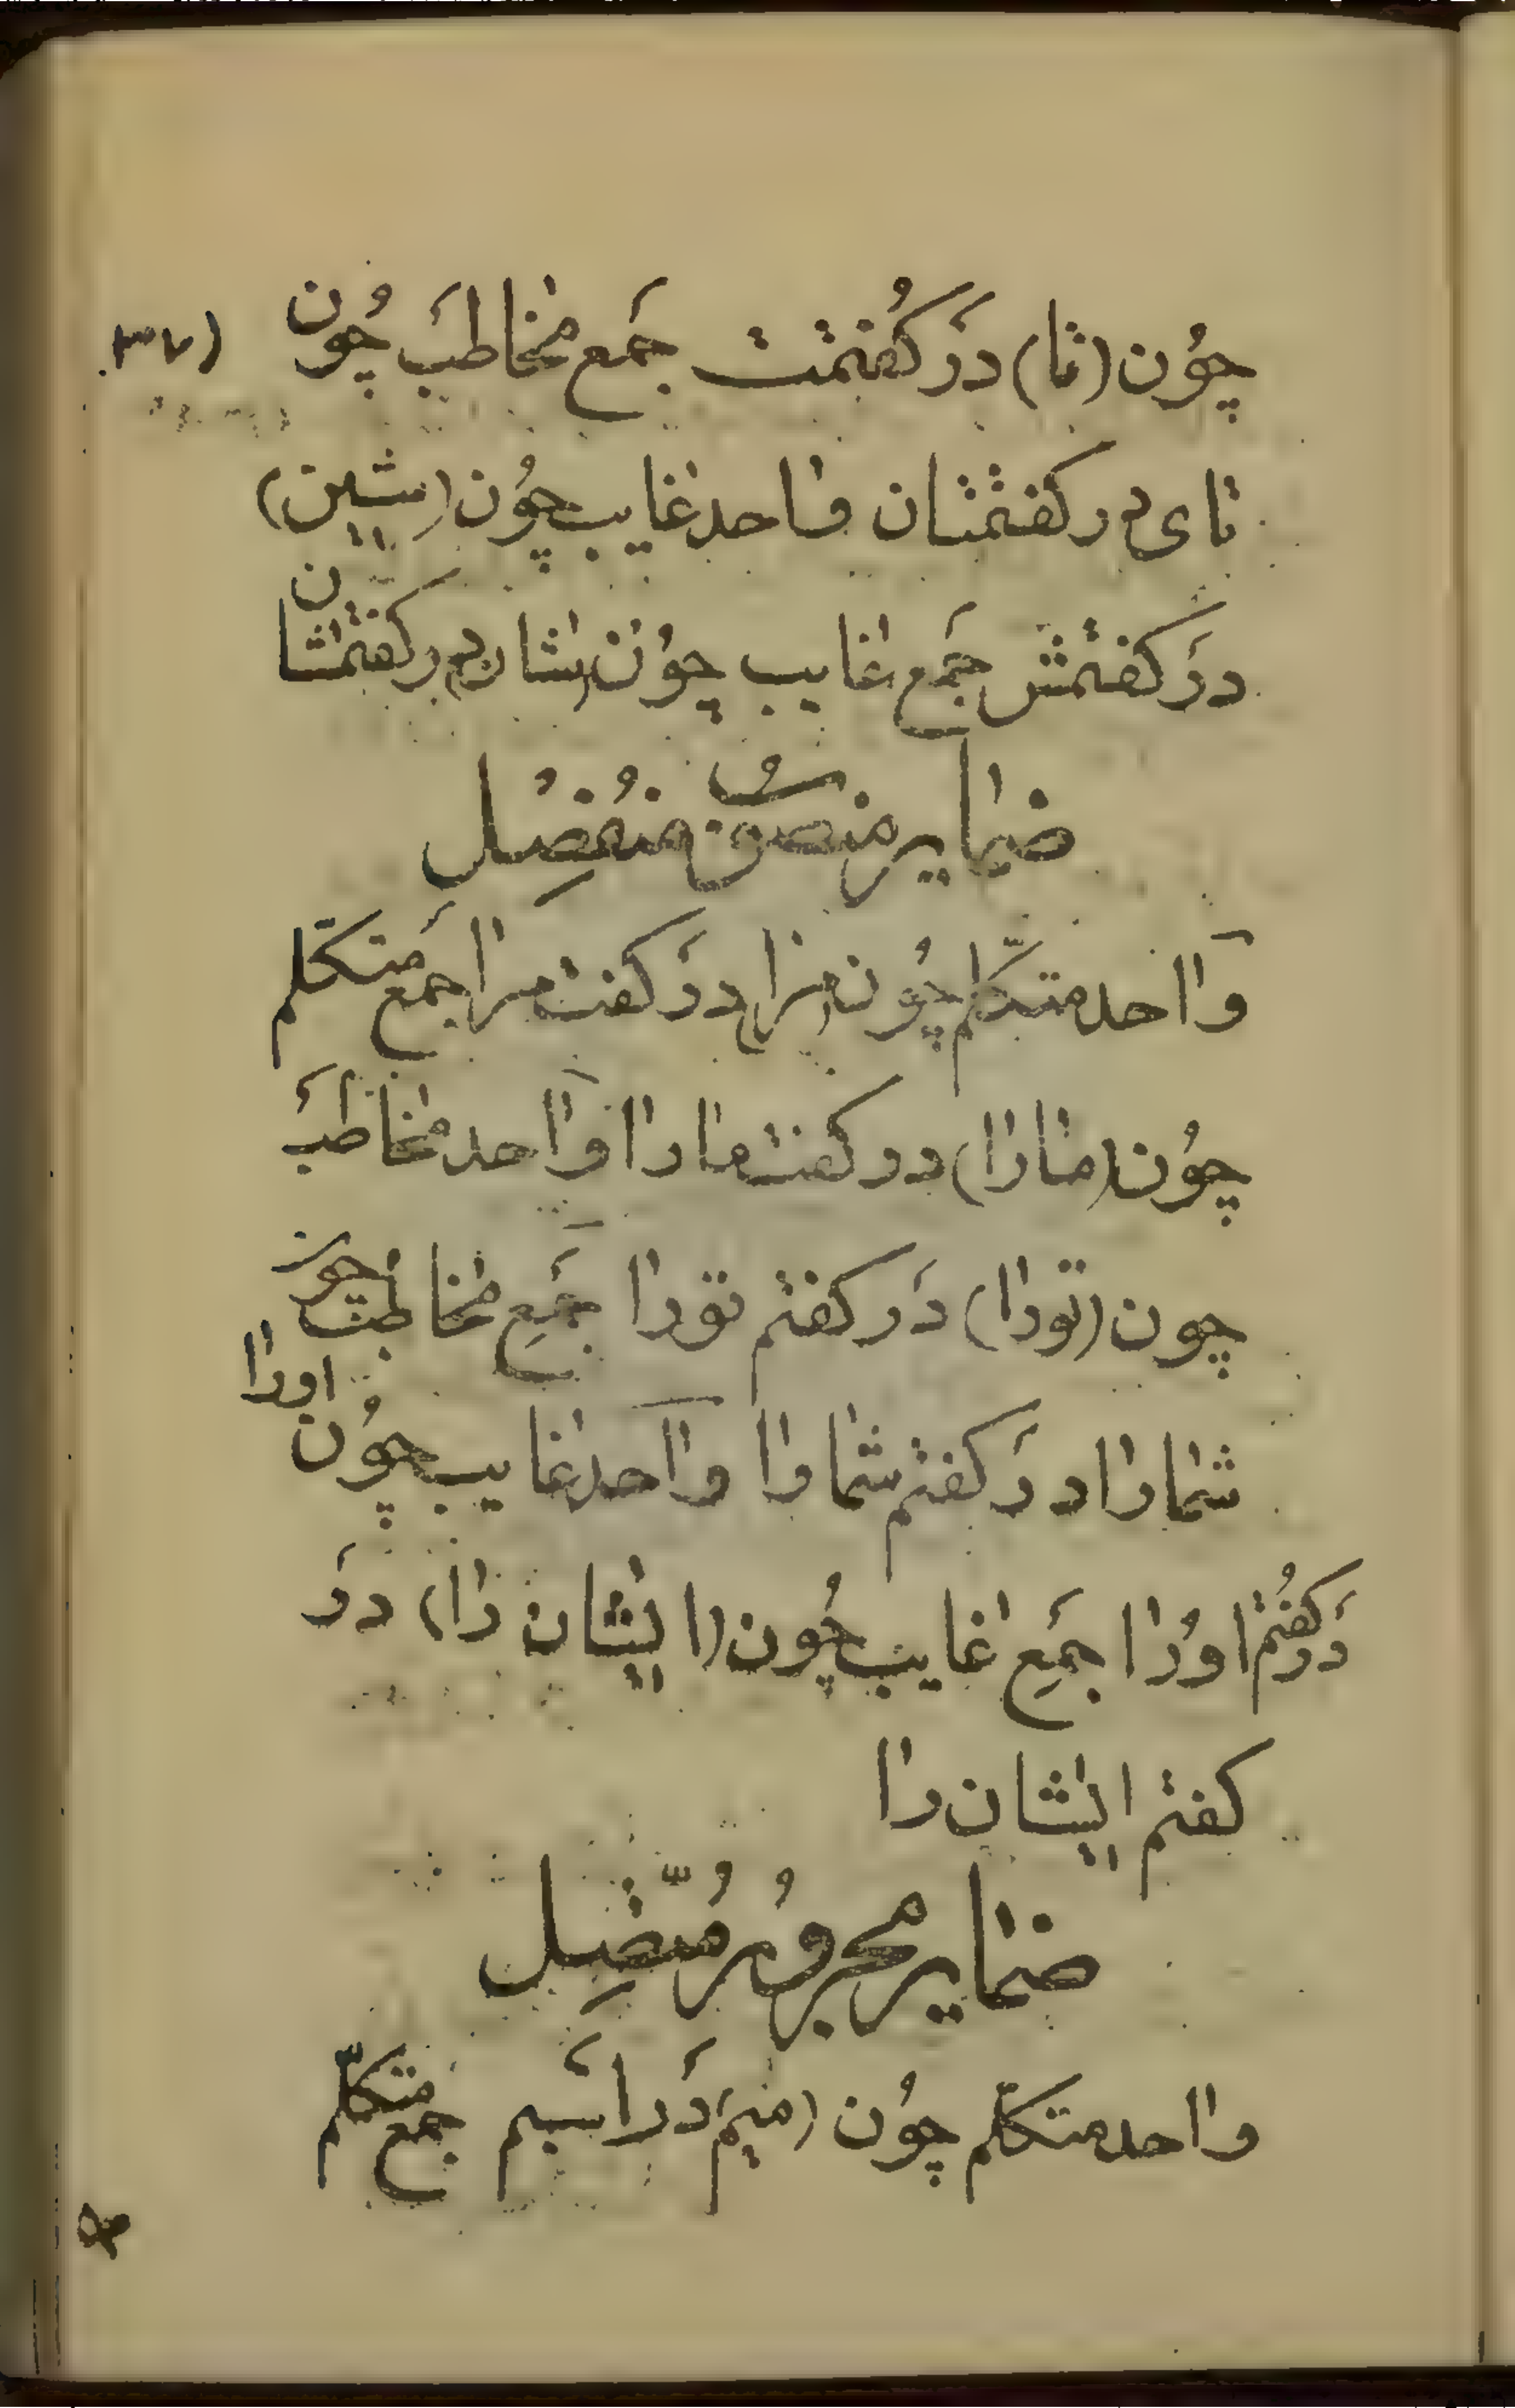 چُون (تا) دَر كُفتمَت جَمع مخاطَب چُون
تای در كفتمتان واحد غايب چُون (شين)
دَر كفتمش جَمع غايب چُون (شان) در كفتمشان
ضماير منصُوب مُنفَصِل
وَاحد متكلّم چُون (مرا) دَر كفت مرا جَمع متكلم
چُون (مارا) در كفت مارا وَاحد مخاطَب
چون (تورا) دَر كفتم تورا جَمعِ مخاطب چون
شمارا در كفتم شمارا وَاحد غايب چُون اورا
دَر كفُتم اورُا جَمعِ غايب چُون (ايشان را) دَر
كفتم ايشان را
ضماير مجرُور مُتّصِل
واحد متكلّم چُون (ميم) دَر اسَبم جمع متكلّم